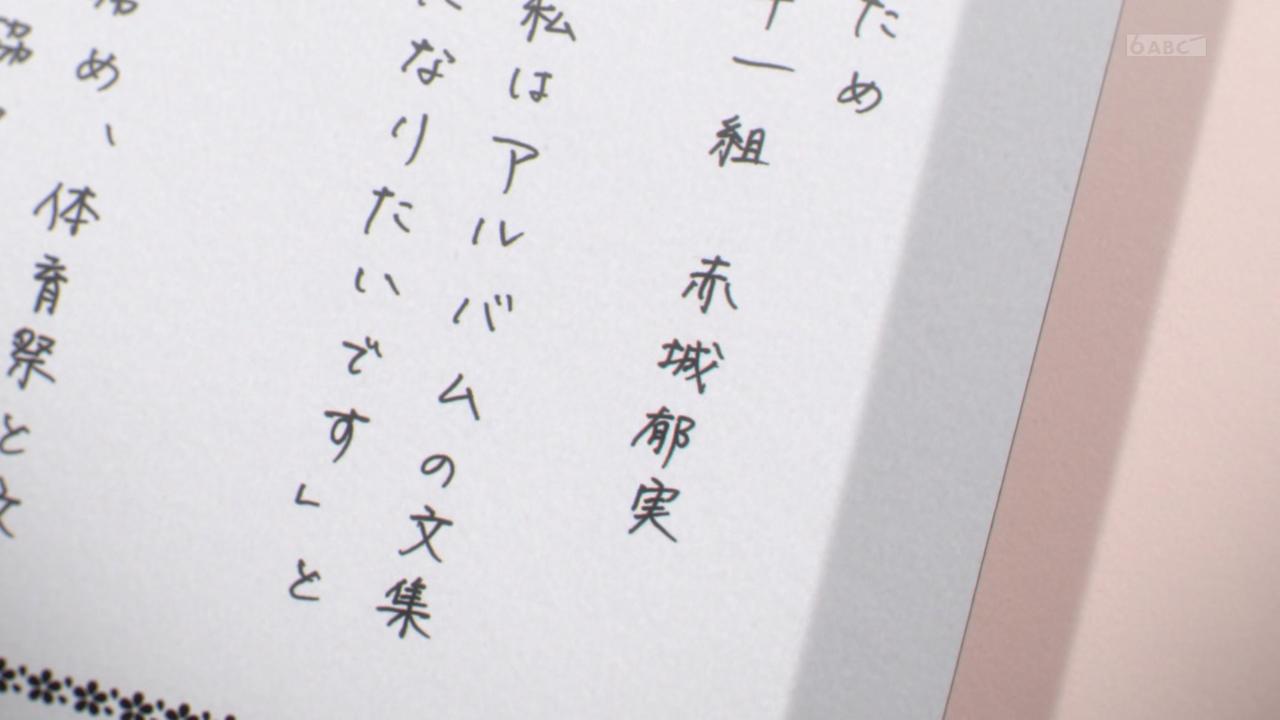 ため
十一組 赤城郁実
私はアルバムの文集
になりたいです」と
め、体育祭と文
6ABC